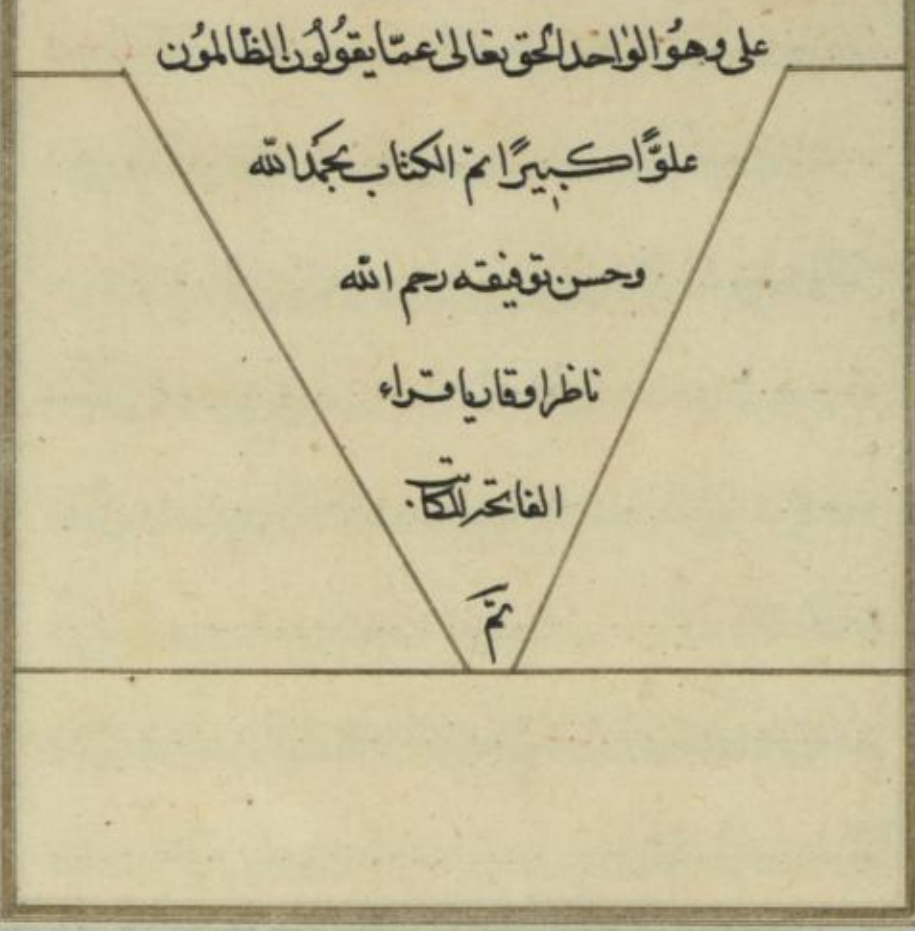 على وهُو الوٰاحد الحق تعالىٰ عمّا يقوُلوُن الظّالموُن
علوًّا كبيرًا تمّ الكتاب بحمد الله
وحسن توفيقه رحم الله
ناظرا وقاريا قراء
الفاتحة للكاتب
تمّ